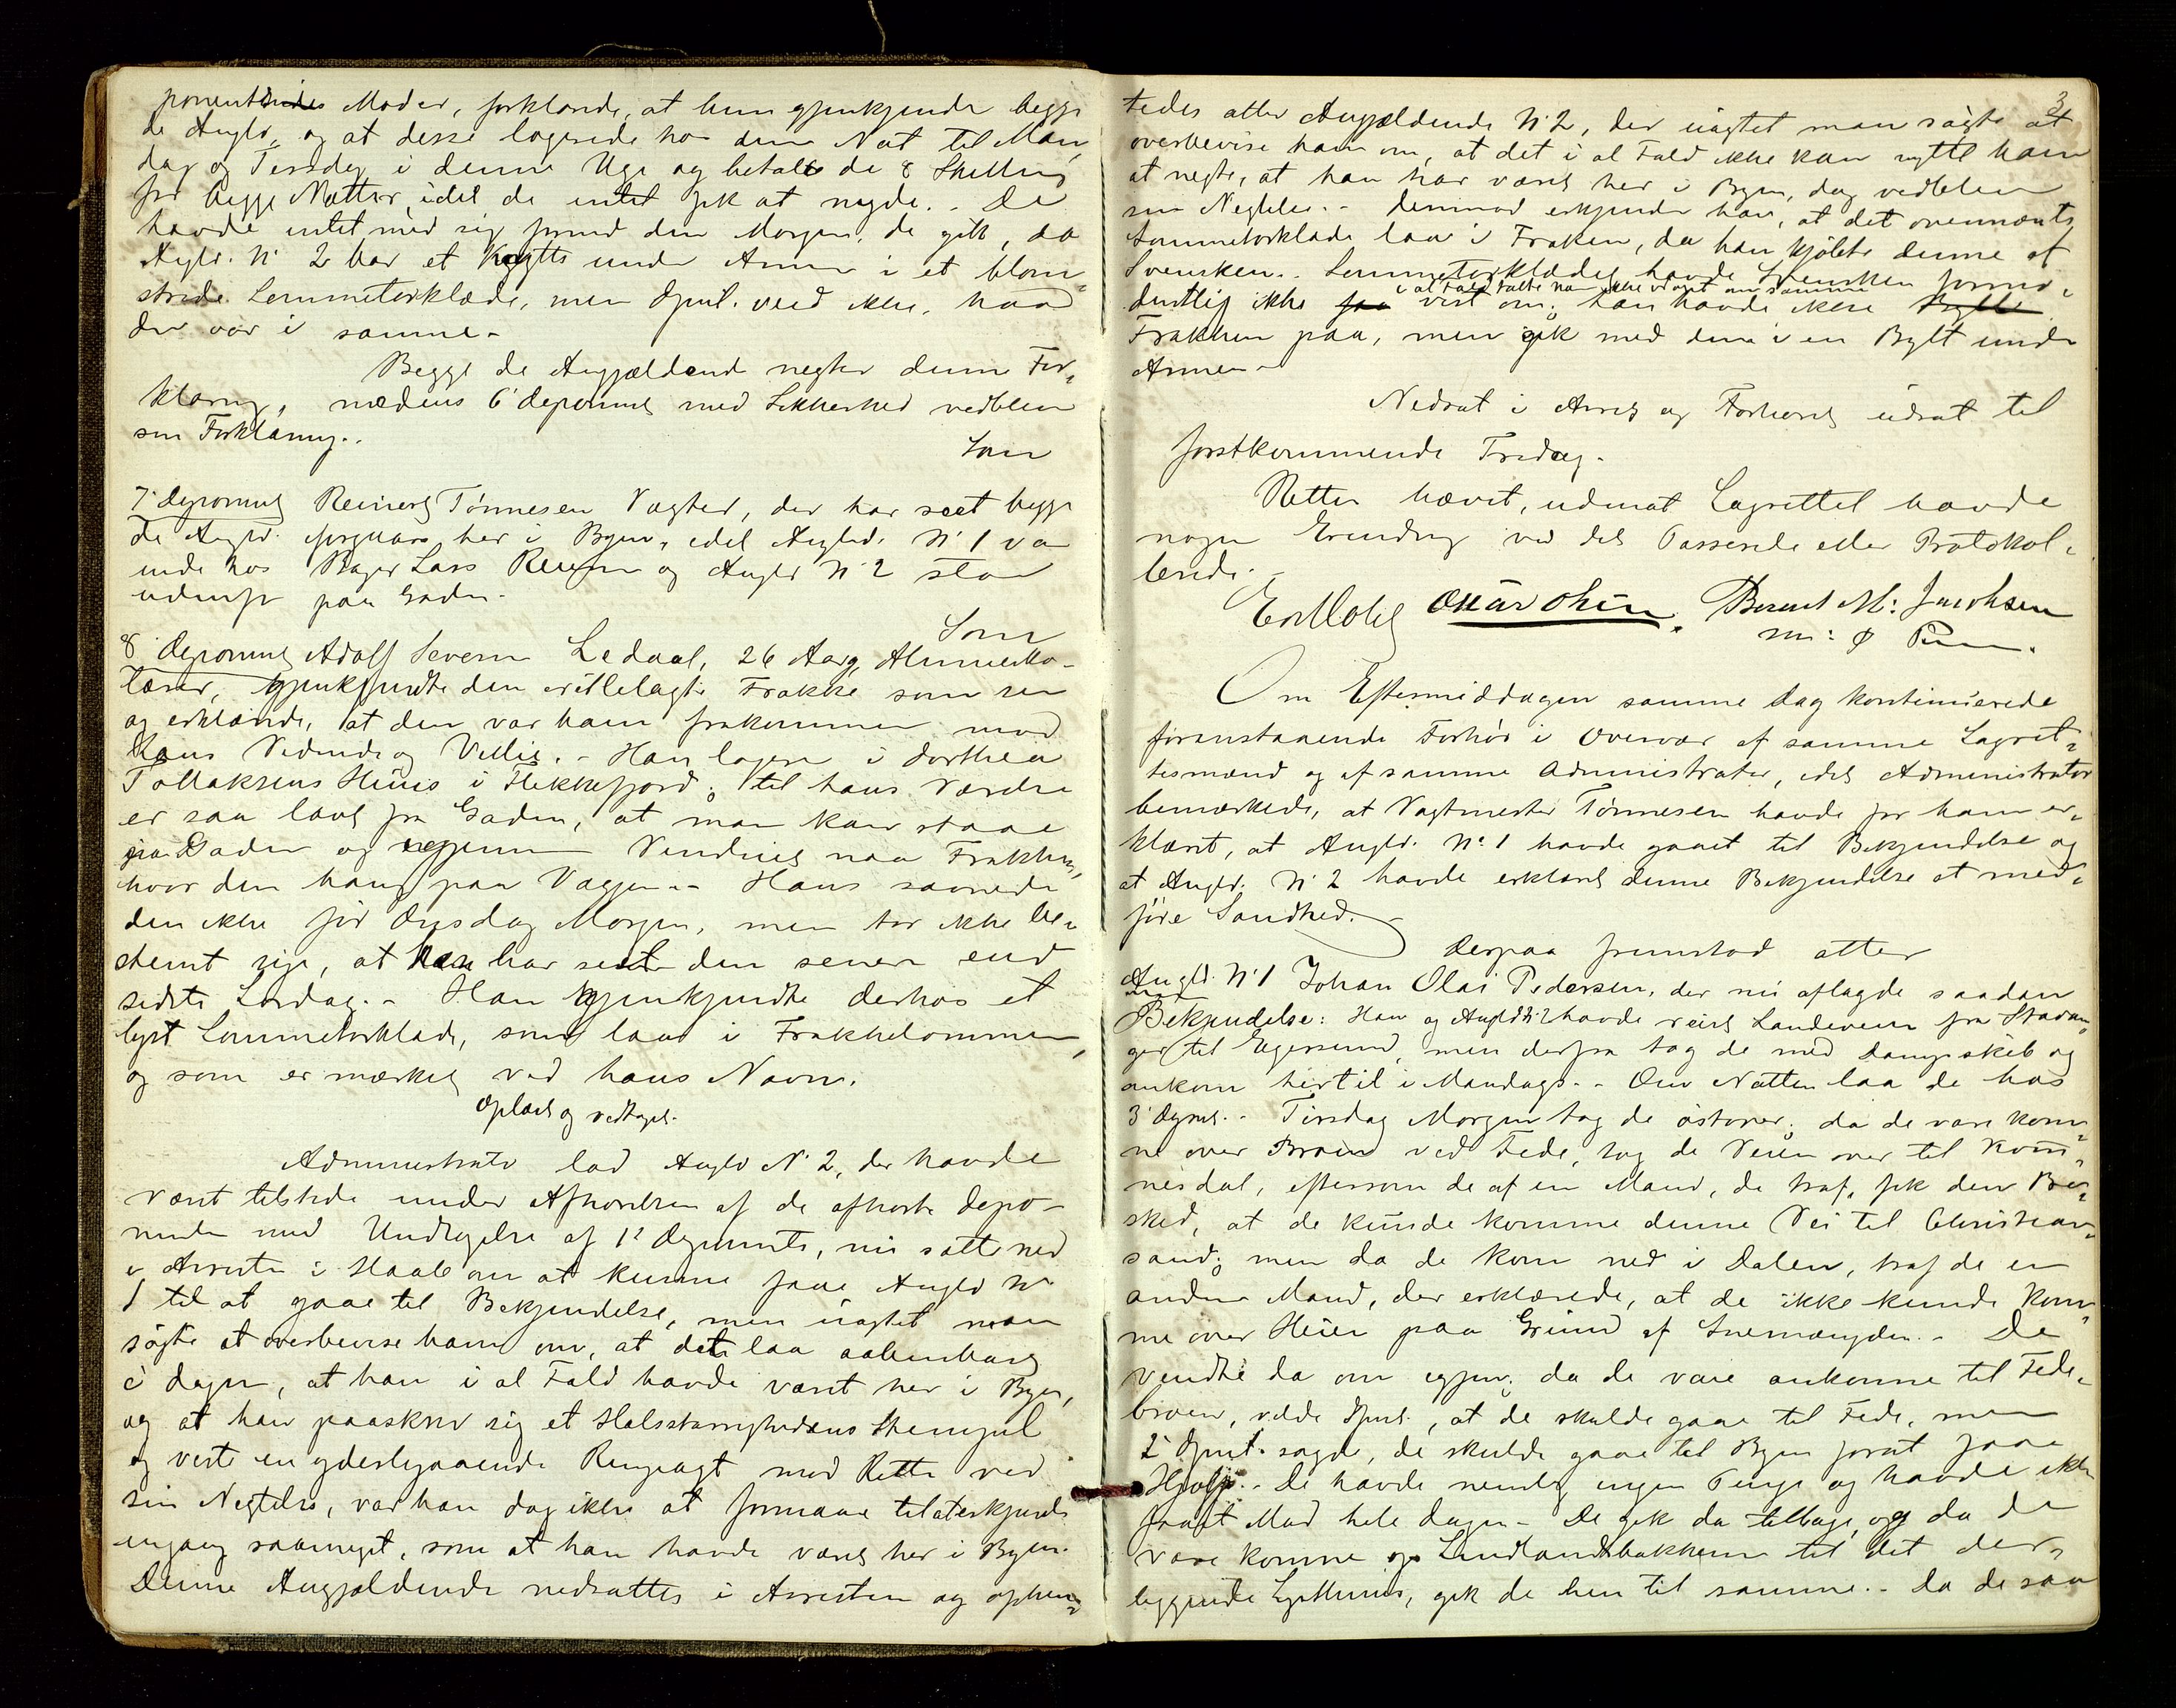 ponentindes Moder, forklarede, at hun gjenkjendte begge
de Angld. og at disse logerede hos dem Nat til Man¬
dag og Tirsdag i denne Uge og betalte de 8 Skilling
for begge Nætter, idet de intet fik at nyde. - De
havde intet med sig forend den Morgen, de gik, da
Angld. N 2 bar et Knytte under Armen i et blom¬
stride Lommetørklæde, men Dpnt. veed ikke, hvad
der var i samme -
Begge de Angjældende negter denne For¬
klaring, medens 6' deponent med Sikkerhed vedblev
sin Forklaring.
Som
7' Deponent Reinert Tønnesen Vægter, der har seet begge
de Angld. her i Byen, idet Angld. N' 1 var
inde hos Bager Lars og Angld N' 2 stod
udenfor paa Gaden -
Som
8' Deponent Adolf Severin Ledaal, 26 Aar g,
lærer, gjenkjendte den fremlagte Frakke som sin
og erklærede, at den var ham frakommen mod
Hans Vidende og Villie. - Han logerer i Dorthea
Tollaksens Huus i Flekkefjord; til hans Værelse
er saa lavt fra Gaden, at man kan staae
paa Gaden og igjennem Vinduet naa Frakken,
hvor den hang paa Væggen - Hans savnede
den ikke før Onsdag Morgen, men tør ikke be¬
stemt sige, at han har seet den senere end
sidste Lørdag. - Han gjenkjendte derhos et
lyst Lommetørklæde, som laae i Frakkelommen,
og som er mærket ved hans Navn.
Oplæst og vedtaget.
Administrator lod Angld N' 2, der havde
været tilstede under Afhørelsen af de afhørte Depo¬
nenter med Undtagelse af 1' Deponente, nu sætte ned
i Arresten i Haab om at kunne faae Angld N'
1 til at gaae til Bekjendelse, men uagtet man
søgte at overbevise ham om, at det laa aabenbart
i Dagen, at han i al Fald havde været her i Byen,
og at han paaskrev sig et Halsstarrighedens Stempel
og viste en yderligaaende Ringeagt mod Retten ved
sin Negtelse, var han dog ikke at formaae til at erkjende
engang saameget, som at han havde været her i Byen.
Denne Angjældende nedsattes i Arresten og ophen¬
3
tedes atter Angjældende N' 2, der uagtet man søgte at
overbevise ham om, at det i al Fald ikke kan nytte ham
at negte, at han har været her i Byen, dog vedblev
sin Negtelse. - Derimod erkjender han, at det ovennævnte
Lommetørklæde laa i Frakken, da han kjøbte denne af
Svensken. - Lommetørklædet havde Svensken formo¬
i al Fald talte han ikke videre om samme
dentlig ikke vist om; han havde ikke
Frakken paa, men gik med den i en Bylt under
Armen -
Nedsat i Arrest og Forhøret udsat til
førstkommende Fredag.
Retten hævet, uden at Lagrettet havde
nogen Erindring ved det Passerede eller Protokol¬
lerede. -
Bernt M: Jacobsen
m: ø Pen.
Om Eftermiddagen samme Dag kontinuerede
foranstaaende Forhør i Overvær af samme Lagret¬
tesmænd og af samme Administrator, idet Administrator
bemærkede, at Vagtmester Tønnesen havde for ham er¬
klæret, at Angld. N: 1 havde gaaet til Bekjendelse og
at Angld. N' 2 havde erklæret denne Bekjendelse at med¬
føre Sandhed. -
Derpaa fremstod atter
Angld. N' 1 Johan Olai Pedersen, der nu aflagde saadan
Bekjendelse: Han og Angld N' 2 havde reist Landeveien fra Stavan¬
ger til Egersund, men derfra tog de med Dampskib og
ankom hertil i Mandags. - Om Natten laa de hos
3' Dpnt. - Tirsdag Morgen tog de østover; da de vare kom¬
ne over Broen ved Fede, tog de Veien over til Kvi¬
nesdal, eftersom de af en Mand, de traf, fik den Be¬
sked, at de kunde komme denne Vei til Christian¬
sand; men da de kom ned i Dalen, traf de en
anden Mand, der erklærede, at de ikke kunde kom¬
me over Heien paa Grund af Snemængden. - De
vendte da om igjen; da de vare ankomne til Fede¬
broen, vilde Dpnt., at de skulde gaae til Fede, men
2' Dpnt. sagde, de skulde gaae til Byen forat faae
Hjælp. - De havde nemlig ingen Penge og havde ikke
faaet Mad hele Dagen - De gik da tilbage, og da de
vare komne op Lindlandsbakkene til det der¬
liggende Lysthuus, gik de hen til samme. - Da de saa